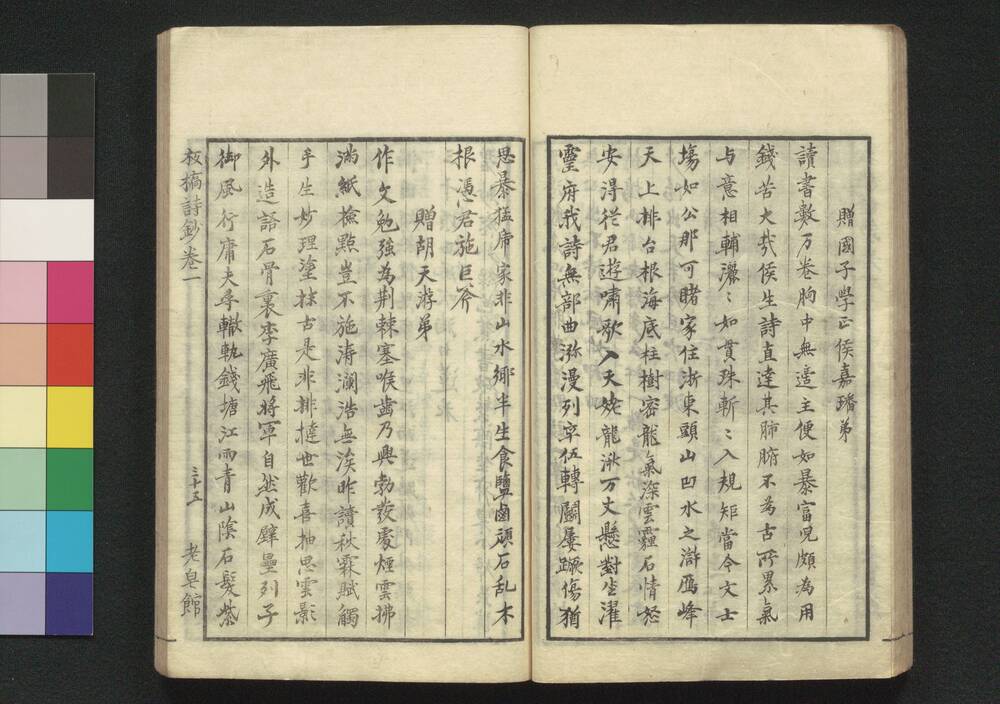 贈國子學正侯嘉璠弟
讀書數万卷胸中無適主便如暴富兒頗為用
錢苦大哉侯生詩直達其肺腑不為古所累氣
与意相輔灑〻如貫珠斬〻入規矩當今文士
塲如公那可睹家住浙東頭山凹水之滸鴈峰
天上排台根海底柱樹密龍氣深雲霾石情怒
安得從君遊嘯歌入天姥龍湫万丈懸對坐濯
靈府我詩無部曲瀰漫列卒伍轉鬬屢蹶傷猶
思暴猛虎家非山水鄉半生食鹽鹵頑石乱木
根憑君施巨斧
贈胡天游弟
作文勉強為荆棘塞喉齒乃興勃發處煙雲拂
滿紙檢點豈不施濤瀾浩無涘昨讀秋霖賦觸
手生妙理塗抹古是非排撻世歡喜抽思雲影
外造語石骨裏李廣飛將軍自然成壁壘列子
御風行庸夫尋轍軌錢塘江雨青山陰石髮紫
板橋詩鈔卷一
三十五
老皂館